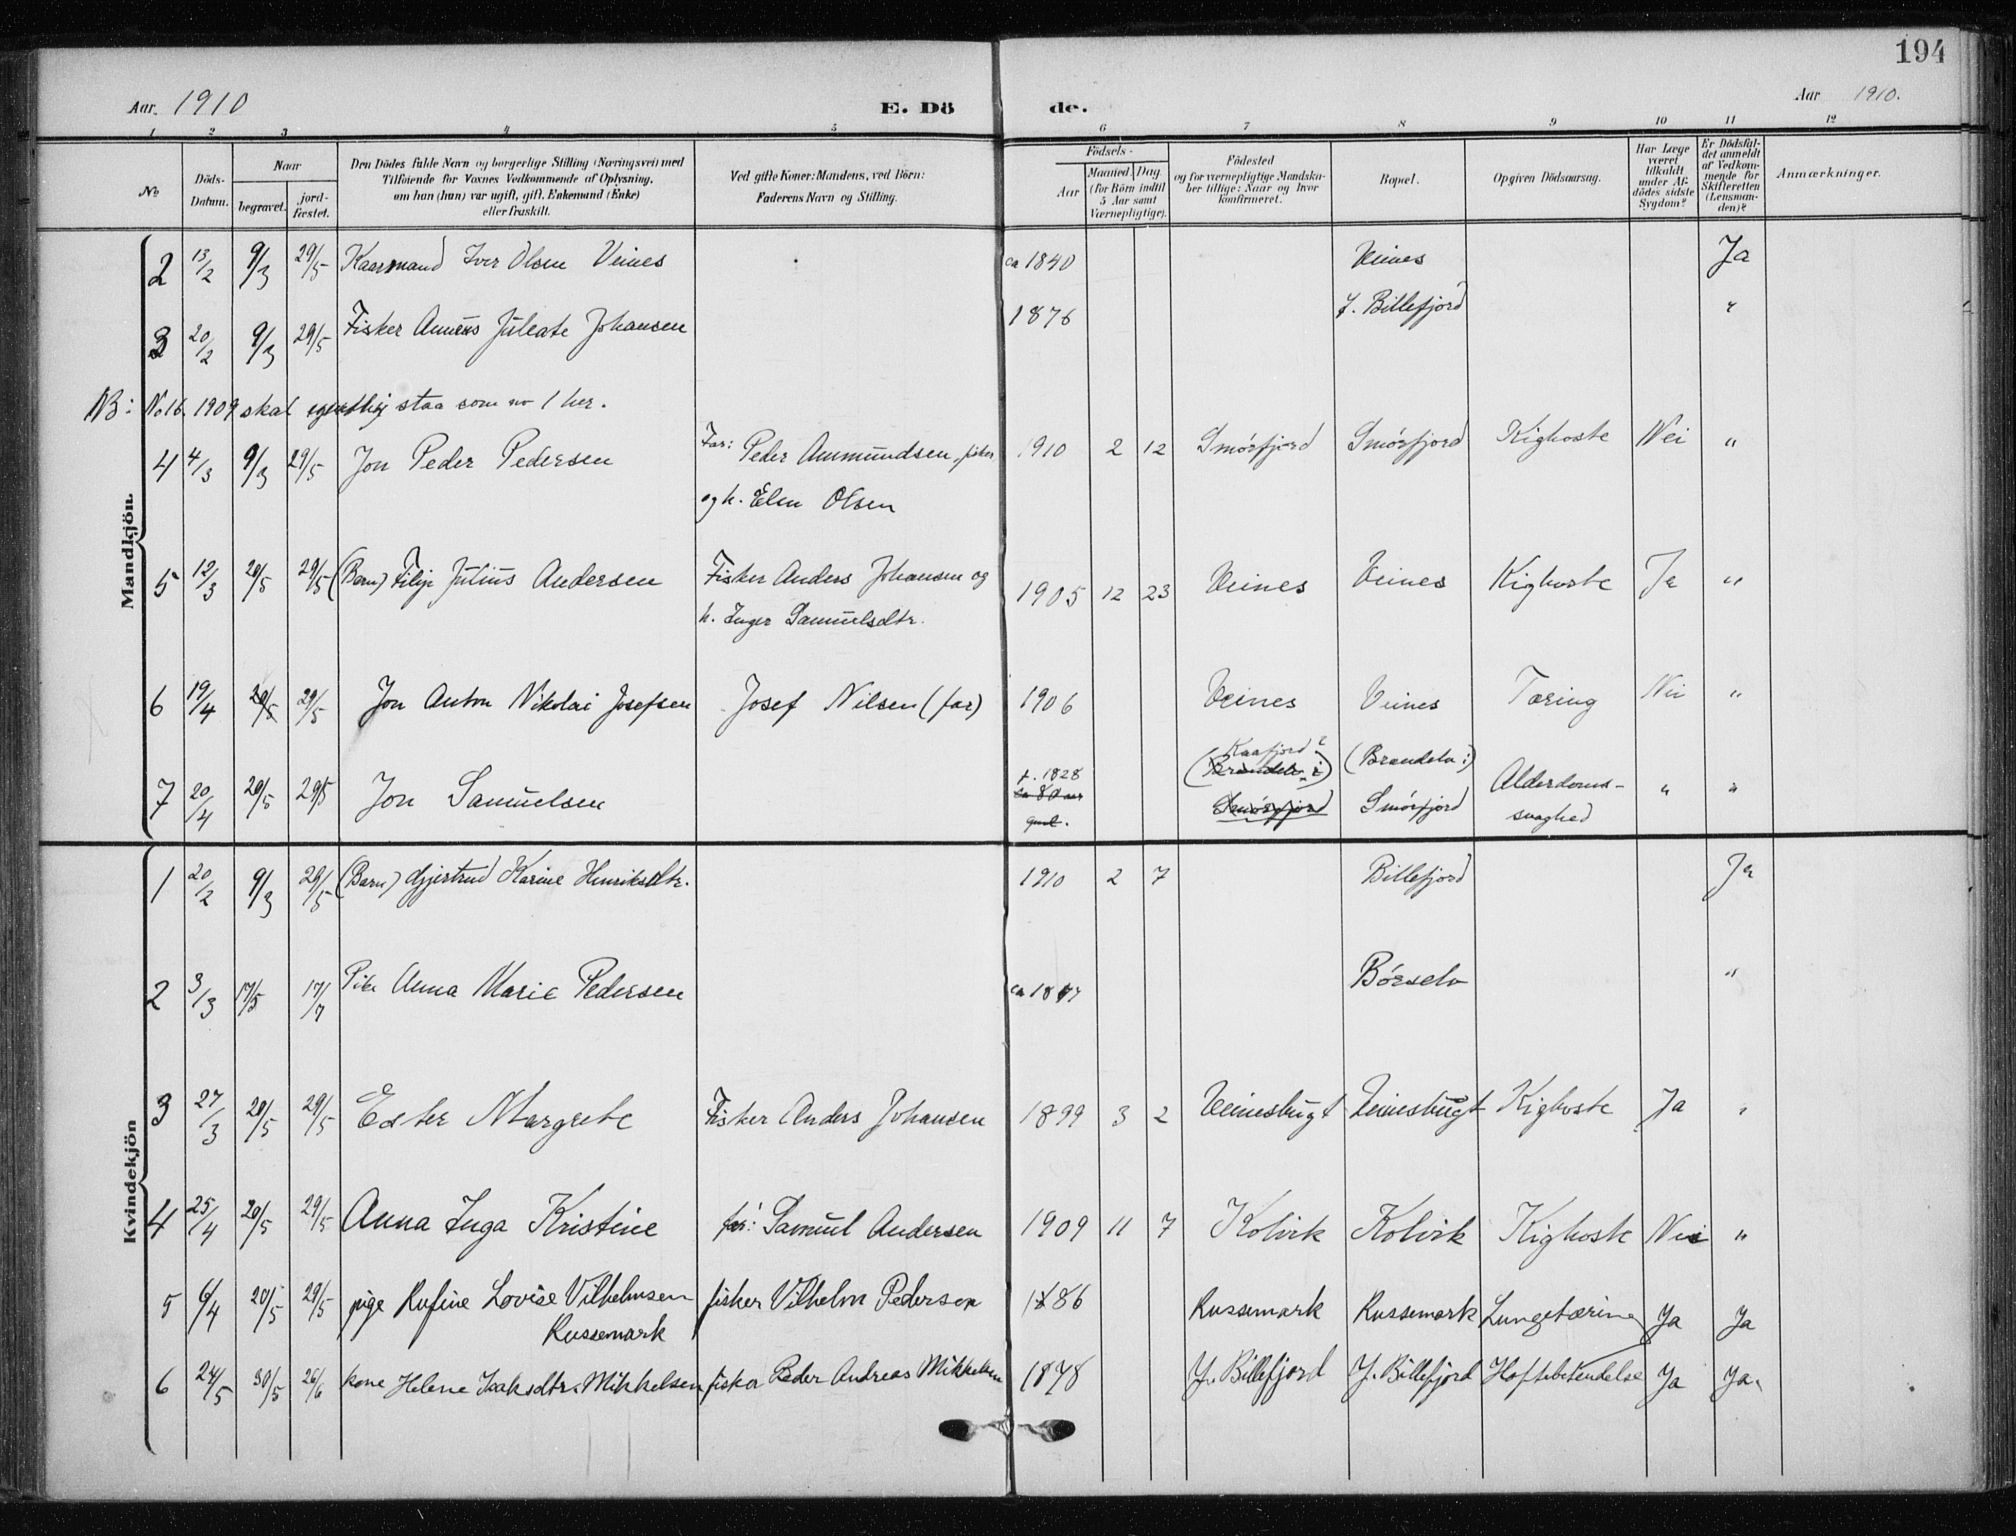 194
Aar. 1910
E. Dö
de.
Aar 1910.
1 2 3 4 5 6 7 8 9 10 11 12
No
Döds-Datum.
Naar
begravet.
jord-fæstet.
Den Dödes fulde Navn og borgerlige Stilling (Næringsvei) med
Tilföiende for Voxnes Vedkommende af Oplysning,
om han (hun) var ugift, gift, Enkemand (Enke)
eller fraskilt.
Ved gifte Koner: Mandens, ved Börn:
Faderens Navn og Stilling.
Födsels-
Aar
Maaned. Dag.
(for Börn indtil
5 Aar samt
Værnepligtige).
Födested
og for værnepligtige Mandska-
ber tillige: Naar og hvor
konfirmeret.
Bopæl.
Opgiven Dödsaarsag.
Har Læge
været
tilkaldt
under Af-
dödes sidste
Sygdom?
Er Dödsfal-
det anmeldt
af Vedkom-
mende for
Skifteretten
(Lensman-
den)?
Anmærkninger.
Mandkjön.
2 13/2 9/3 29/5 Kaarmand Iver Olsen Veines ca 1840 Veines Ja
3 20/2 9/3 29/5 Fisker Juleate Johansen 1876 Y. Billefjord "
NB: No 16. 1909 skal egentlig staa som no 1 her.
4 4/3 9/3 29/5 Jon Peder Pedersen Far: Peder Ammundsen, fisker 1910 2 12 Smørfjord Smørfjord Kighoste Nei "
og h. Elen Olsen
5 12/3 20/5 29/5 (Barn) Filip Julius Andersen Fisker Anders Johansen og 1905 12 23 Veines Veines Kighoste Ja "
h. Inger Samuelsdtr.
6 19/4 20/5 29/5 Jon Anton Nikolai Josefsen Josef Nilsen (far) 1906 Veines Veines Tæring Nei "
Kaafjord?
7 20/4 20/5 29/5 Jon Samuelsen f. 1828 (Brændelv i) (Brændelv i) Alderdoms- " "
ca 80 aar Smørfjord Smørfjord svaghed
gml.
Kvindekjön
1 20/2 9/3 29/5 (Barn) Gjertrud Karine Henriksdtr. 1910 2 7 Billefjord Ja
2 3/3 17/5 17/7 Anna Marie Pedersen ca Børselv "
3 27/3 20/5 29/5 Ester Margrete Fisker Anders Johansen 1899 3 2 Veinesbugt Veinesbugt Kighoste Ja "
4 25/4 20/5 29/5 Anna Inga Kristine far: Samuel Andersen 1909 11 7 Kolvik Kolvik Kighoste Nei "
5 6/4 20/5 29/5 pige Rufine Lovise Vilhelmsen fisker Vilhelm Pedersen 1886 Russemark Russemark Lungetæring Ja Ja
Russemark
6 24/5 30/5 26/6 kone Helene Isaksdtr. Mikkelsen fisker Peder Andreas Mikkelsen 1878 Y. Billefjord Y. Billefjord Hoftebetendelse Ja Ja.